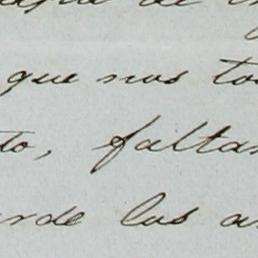 que nos to
to, faltas
rde las a